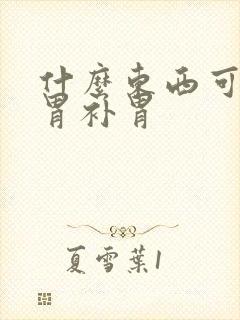 什麼東西可
胃补胃
夏雪葉1